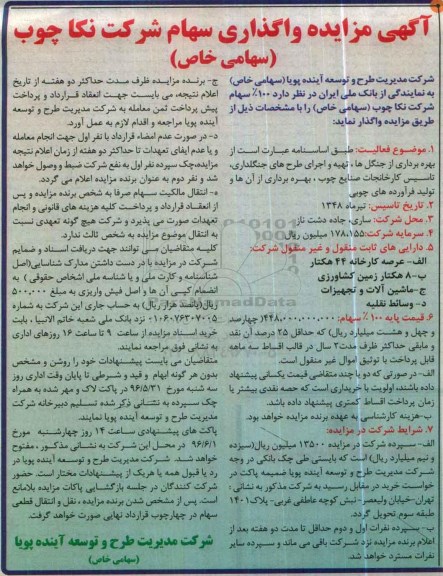 آگهی مزایده واگذاری سهام شرکت نکا چوب
(سهامی خاص)
شرکت مدیریت طرح و توسعه آینده پویا (سهامی خاص)
به نمایندگی از بانک ملی ایران در نظر دارد ۱۰۰٪ سهام
شرکت نکا چوب (سهامی خاص) را با مشخصات ذیل از
طریق مزایده واگذار نماید:
۱. موضوع فعالیت: طبق اساسنامه عبارت است از
بهره برداری از جنگل ها، تهیه و اجرای طرح های جنگلداری،
تاسیس کارخانجات صنایع چوب، بهره برداری از آن ها و
تولید فرآورده های چوبی
۲. تاریخ تاسیس: تیرماه ۱۳۴۸
۳. محل شرکت: ساری، جاده دشت ناز
۴. سرمایه شرکت: ۱۷۸،۱۵۵ میلیون ریال
۵. دارایی های ثابت منقول و غیر منقول شرکت:
الف- عرصه کارخانه ۴۴ هکتار
ب- ۸ هکتار زمین کشاورزی
ج- ماشین آلات و تجهیزات
د- وسائط نقلیه
۶. قیمت پایه ۱۰۰٪ سهام: ۴۴۸،۰۰۰،۰۰۰،۰۰۰ (چهارصد
و چهل و هشت میلیارد ریال) که حداقل ۲۵ درصد آن نقد
و مابقی حداکثر ظرف مدت ۳ سال در قالب اقساط سه ماهه
قابل پرداخت با توثیق اموال غیر منقول است.
الف- در صورتی که دو یا چند متقاضی قیمت یکسانی پیشنهاد
داده باشند، اولویت با خریداری است که حصه نقدی بیشتر یا
زمان پرداخت اقساط کمتری پیشنهاد داده باشد.
ب- هزینه کارشناسی به عهده برنده مزایده خواهد بود.
۷. شرایط شرکت در مزایده:
الف- سپرده شرکت در مزایده ۱۳۵۰۰ میلیون ریال (سیزده
و نیم میلیارد ریال) است که بایستی طی چک بانکی در وجه
شرکت مدیریت طرح و توسعه آینده پویا ضمیمه پاکت در
خواست خرید در مقابل رسید به شرکت مذکور به نشانی:
تهران- خیابان ولیعصر- نبش کوچه عاطفی غربی- پلاک ۱۴۰۱
طبقه سوم تحویل گردد.
ب- سپرده نفرات اول و دوم حداقل تا مدت دو هفته بعد از
اعلام برنده مزایده نزد شرکت باقی می ماند و سپرده سایر
نفرات مسترد خواهد شد.
ج- برنده مزایده ظرف مدت حداکثر دو هفته از تاریخ
اعلام نتیجه، می بایست جهت انعقاد قرارداد و پرداخت
پیش پرداخت ثمن معامله به شرکت مدیریت طرح و توسعه
آینده پویا مراجعه و اقدام لازم به عمل آورد.
د- در صورت عدم امضاء قرارداد با نفر اول جهت انجام معامله
و یا عدم ایفای تعهدات تا حداکثر دو هفته از زمان اعلام نتیجه
مزایده، چک سپرده نفر اول به نفع شرکت ضبط و وصول خواهد
شد و نفر دوم به عنوان برنده مزایده اعلام می گردد.
ه- انتقال مالکیت سهام صرفا به شخص برنده مزایده و پس
از انعقاد قرارداد و پرداخت کلیه هزینه های قانونی و انجام
تعهدات صورت می پذیرد و شرکت هیچ گونه تعهدی نسبت
به انتقال موضوع مزایده به شخص ثالث ندارد.
کلیه متقاضیان می توانند جهت دریافت اسناد و ضمایم
شرکت در مزایده با در دست داشتن مدارک شناسایی (اصل
شناسنامه و کارت ملی و یا شناسه ملی اشخاص حقوقی) به
انضمام کپی آن ها و اصل فیش واریزی به مبلغ ۵۰۰،۰۰۰
ریال (پانصد هزار ریال) به حساب جاری این شرکت به شماره
نزد بانک ملی شعبه خاتم الانبیا، بابت
خرید اسناد مزایده از ساعت ۹ تا ساعت ۱۶ روزهای اداری
به نشانی فوق مراجعه نمایند.
متقاضیان می بایست پیشنهادات خود را روشن و مشخص
بدون هر گونه ابهام و قید و شرطی تا پایان وقت اداری روز
سه شنبه مورخ ۹۶/۵/۳۱ در پاکت لاک و مهر شده به همراه
چک سپرده به نشانی ذکر شده تسلیم دبیرخانه شرکت
مدیریت طرح و توسعه آینده پویا نمایند.
پاکت های پیشنهادی ساعت ۱۴ روز چهارشنبه مورخ
۹۶/۶/۱ در محل این شرکت به نشانی مذکور، مفتوح
خواهد شد. شرکت مدیریت طرح و توسعه آینده پویا در
رد یا قبول همه یا هریک از پیشنهادات مختار است. حضور
شرکت کنندگان در جلسه بازگشایی پاکات مزایده بلامانع
است. پس از مشخص شدن برنده مزایده، نقل و انتقال قطعی
سهام در چهارچوب قرارداد نهایی صورت خواهد گرفت.
شرکت مدیریت طرح و توسعه آینده پویا
(سهامی خاص)